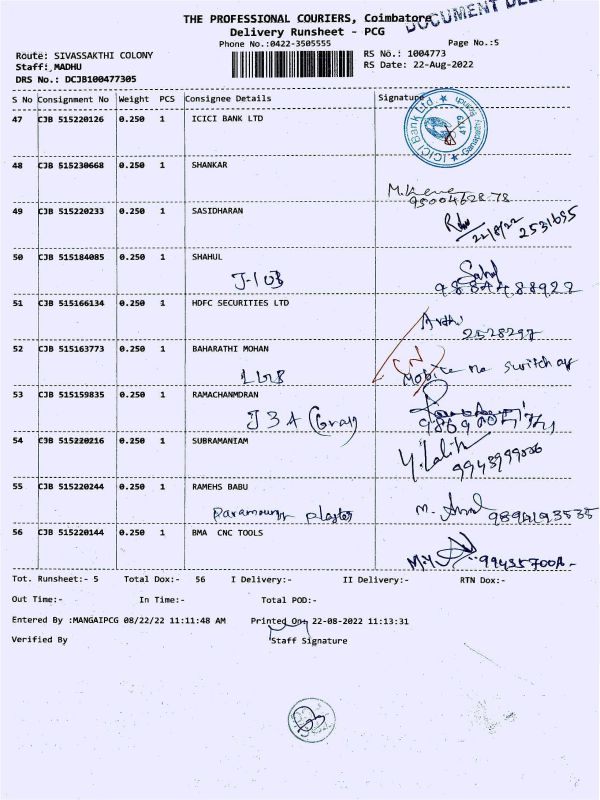 THE PROFESSIONAL COURIERS, Coimbatore
DOCUMENT
Delivery Runsheet - PCG
Phone No.:0422-3505555
Page No.:5
Route: SIVASSAKTHI COLONY
RS No.: 1004773
Staff: MADHU
RS Date: 22-Aug-2022
DRS No.: DCJB100477305
S No Consignment No Weight PCS Consignee Details Signature
47 CJB 515220126 0.250 1 ICICI BANK LTD
ICICI Bank Ltd.
48 CJB 515230668 1 0.250 SHANKAR
49 CJB 515220233 0.250 1 SASIDHARAN
22/8/22 2531695
50 CJB 515184085 0.250 1 SHAHUL
J-10B
9884488922
51 CJB 515166134 0.250 1 HDFC SECURITIES LTD
2528297
52 CJB 515163773 0.250 1 BAHARATHI MOHAN
Mobile no switch off
53 CJB 515159835 0.250 1 RAMACHANMDRAN
J 3A
54 CJB 515220216 0.250 1 SUBRAMANIAM
Y. Lalith
55 CJB 515220244 0.250 1 RAMEHS BABU
9894193535
56 CJB 515220144 0.250 1 BMA CNC TOOLS
Tot. Runsheet:- 5 Total Dox:- 56 I Delivery:- II Delivery:- RTN Dox:-
Out Time:- In Time:- Total POD:-
Entered By :MANGAIPCG 08/22/22 11:11:48 AM Printed On: 22-08-2022 11:13:31
Verified By Staff Signature